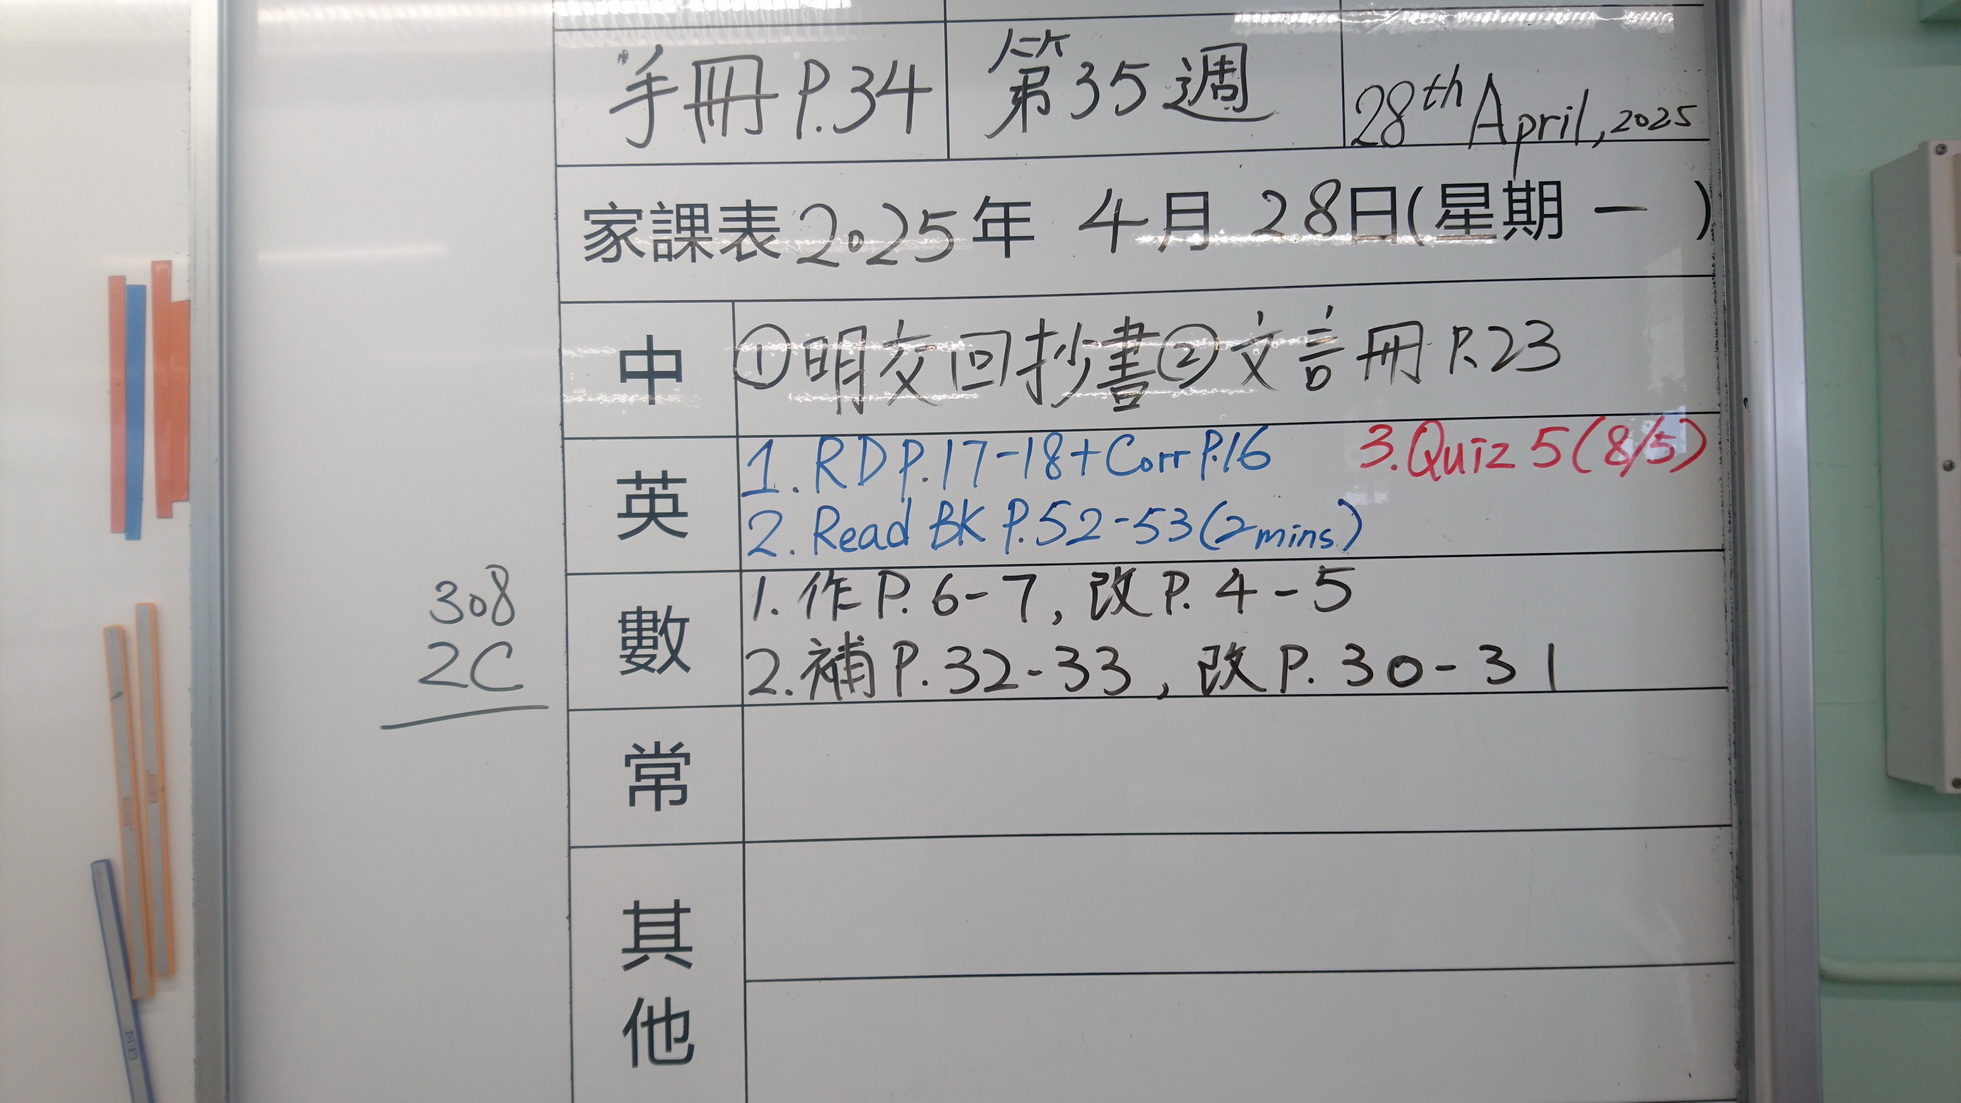 手冊 P.34 第35週 28th April, 2025
家課表 2025年 4月 28日(星期 一 )
中 ①明交回抄書②文言冊 P.23
英 1. RD P.17-18+Corr P.16 3. Quiz 5 (8/5)
2. Read BK P.52-53 (2mins)
數 1. 作 P. 6-7, 改 P. 4-5
2. 補 P. 32-33, 改 P. 30-31
308
2C
常
其他